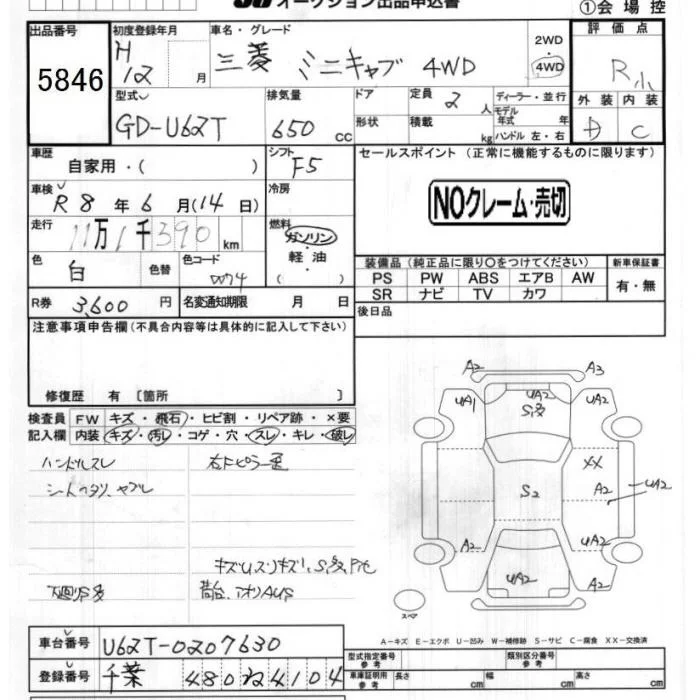 オークション出品申込書
①会場控
出品番号
5846
初度登録年月
H 12 月
車名・グレード
三菱 ミニキャブ 4WD
2WD
・
4WD
評価点
R
外装 内装
D C
型式
GD-U62T
排気量
650 cc
ドア
形状
定員 2 人
積載 kg
ディーラー・並行
モデル年式 年
ハンドル 左・右
車歴
自家用・( )
シフト
F5
車検
R 8 年 6 月 (14 日)
冷房
走行
11万1千390 km
燃料
ガソリン
・
軽油
・
( )
色
白
色替
色コード
W74
R券 3,600 円
名変通知期限 月 日
セールスポイント (正常に機能するものに限ります)
NOクレーム・売切
装備品 (純正品に限り○をつけてください)
PS PW ABS エアB AW
SR ナビ TV カワ
新車保証書
有・無
後日品
注意事項申告欄 (不具合内容等は具体的に記入して下さい)
修復歴 有 〔箇所 〕
検査員記入欄
FW キズ・飛石・ヒビ割・リペア跡・×要
内装 キズ・汚レ・コゲ・穴・スレ・キレ・破レ
ハンドルスレ
シートヘタリ、ヤブレ
右Fピラー歪
キズUスリキズ、S多
下廻りS多
荷台、アオリAUS
A2 A3
UA1 UA2 UA2
S多
XX
S2
A2 UA2
A2 UA2
UA2
スペア
A-キズ E-エクボ U-凹み W-補修跡 S-サビ C-腐食 XX-交換済
車台番号 U62T-0207630
登録番号 千葉 480 ね 4104
型式指定番号
参考
類別区分番号
参考
車庫証明用
参考
長さ cm 幅 cm 高さ cm